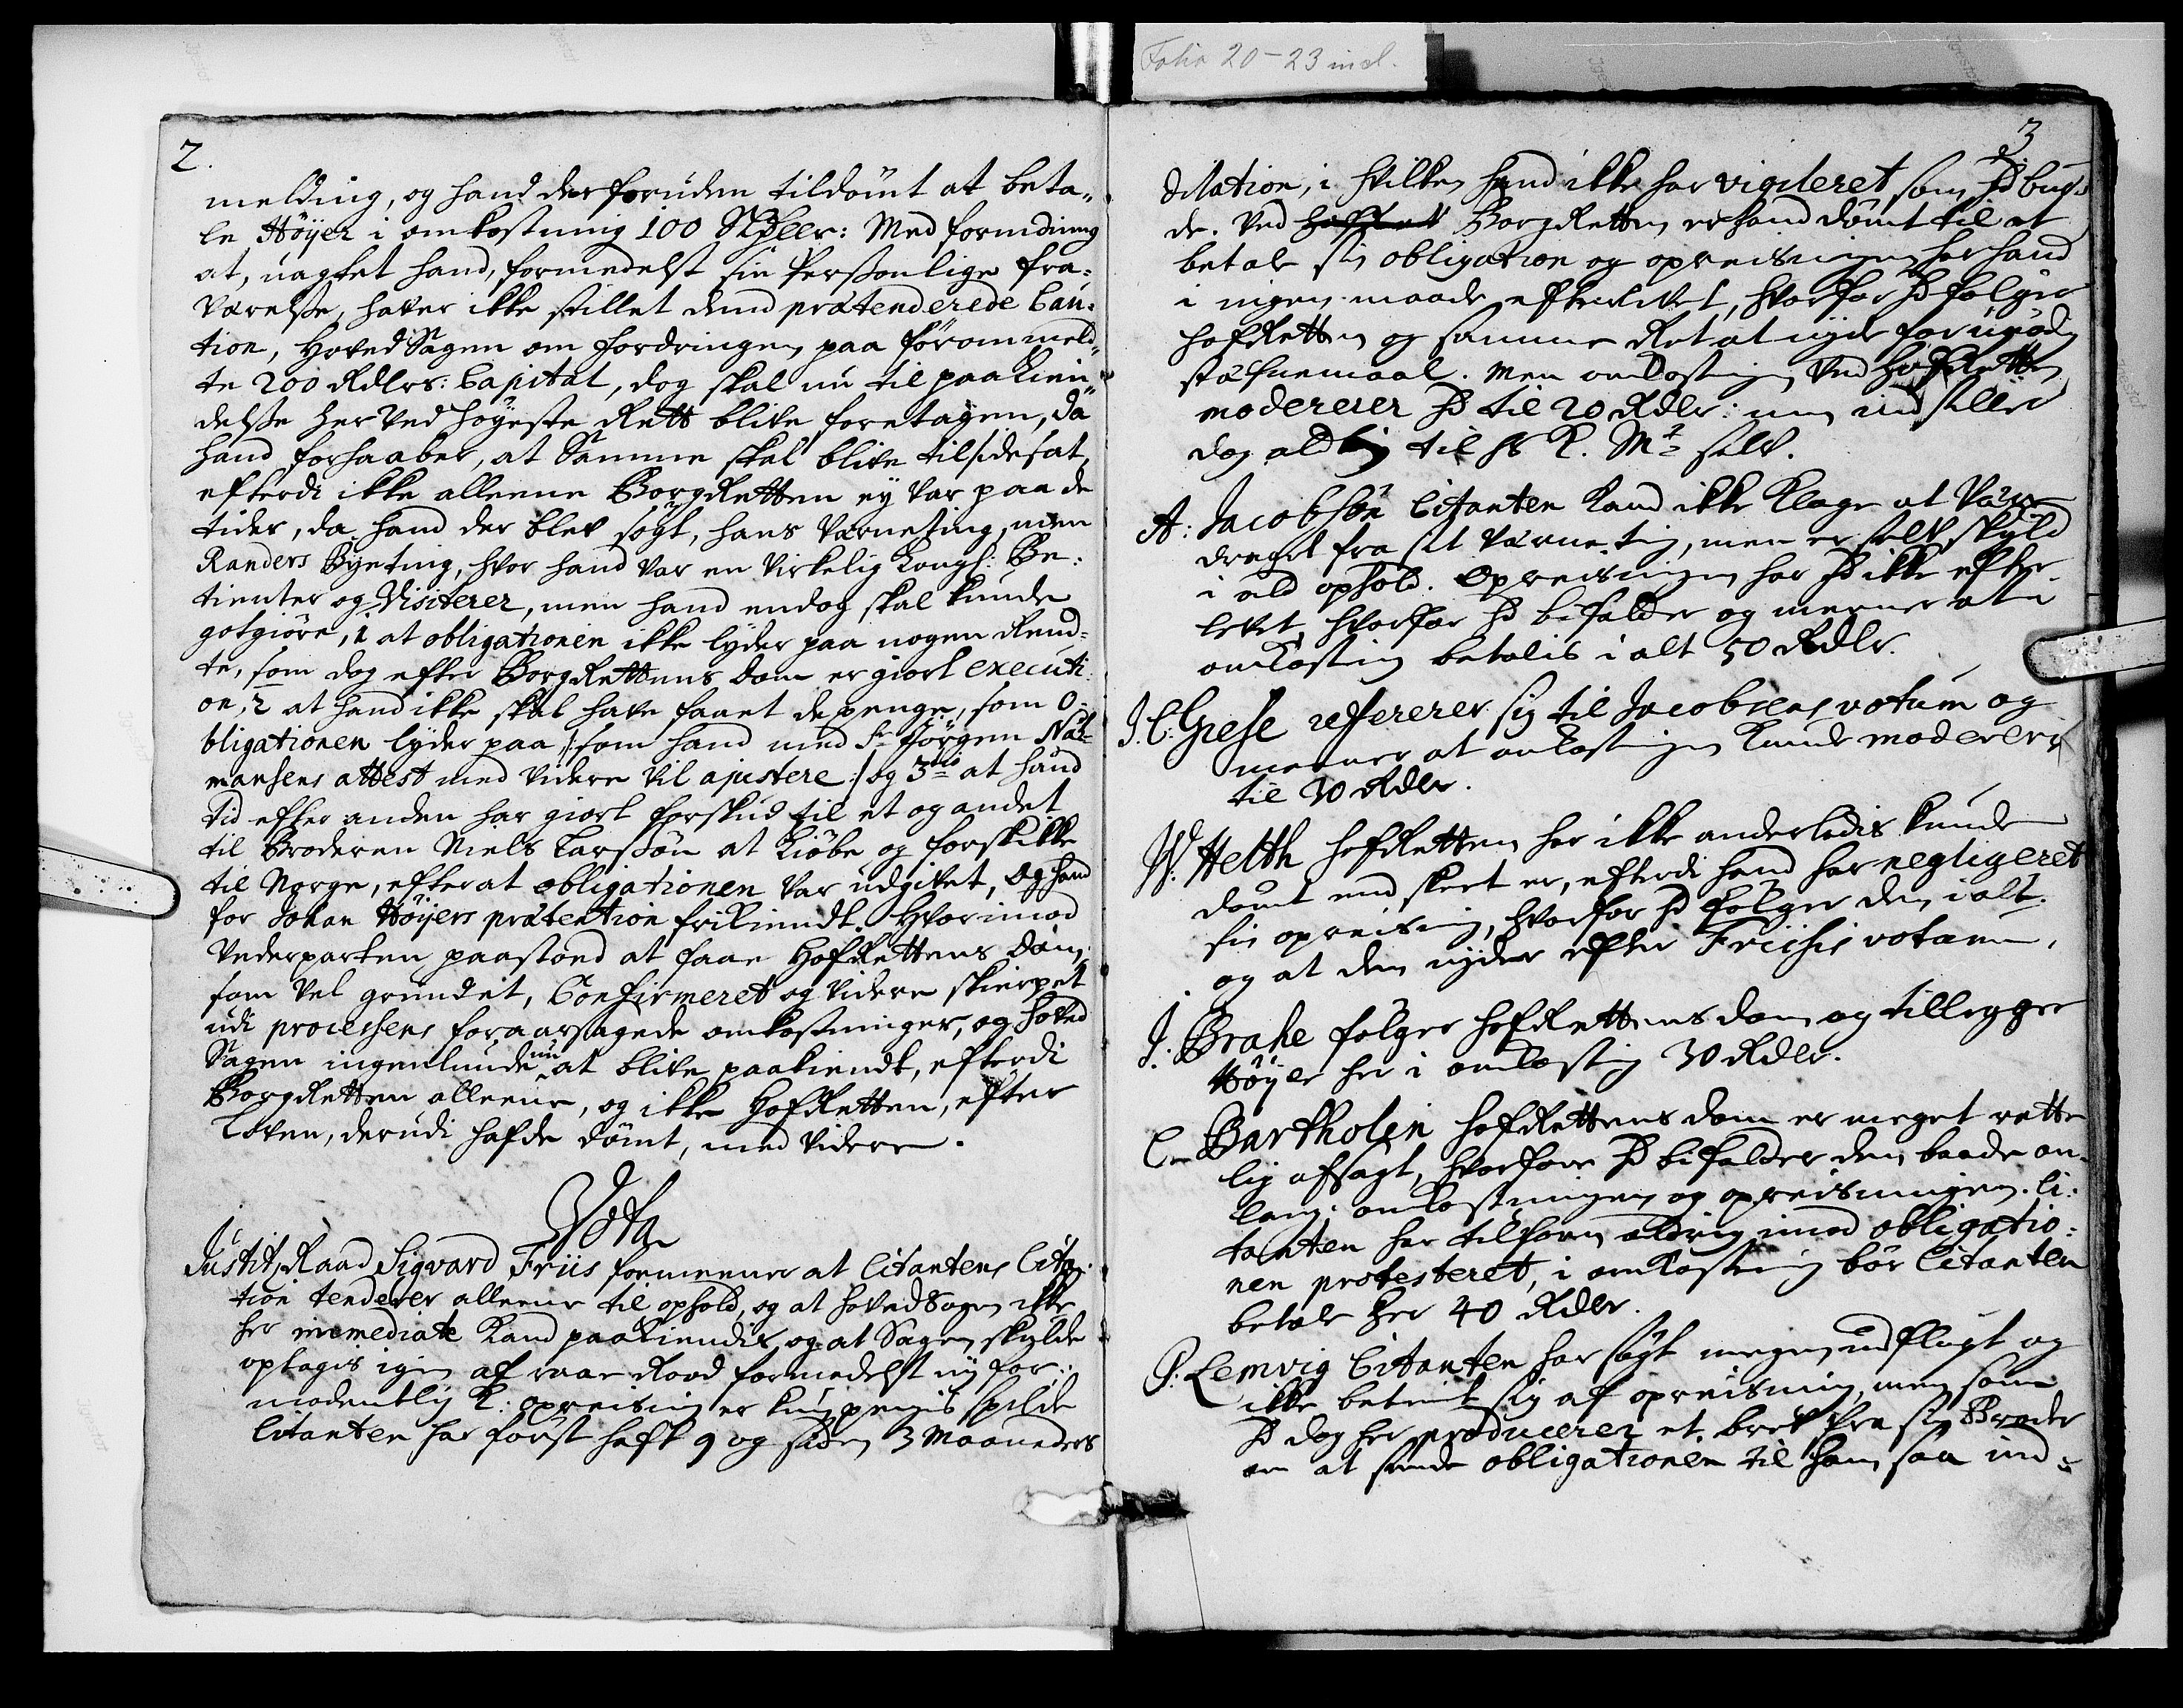 Folio 20-23 incl.
2.
melding, og hand der foruden tildömt at beta„
le Höyer i omkostning 100 Rdlr: Med formening
at, uagtet hand, formedelst sin Perssonlige fra„
værelsse, haver ikke stillet dend prætenderede Cau„
tion, HovedSagen om fordringen paa förommeld„
te 200 Rdlrs: Capital, dog skal nu til paakien„
delsse her ved höyeste Rett blive foretagen, da
hand forhaaber, at Samme skal blive tilsidesat,
efterdi ikke alleene BorgRetten ey var paa de
tider, da hand der blev sögt, hans Værneting, men
Randers Byeting, hvor hand var en virkelig Kongl: Be„
tienter og Visiterer, men hand endog skal kunde
gotgiöre, 1 at obligationen ikke lyder paa nogen Rend„
te, som dog efter BorgRettens Dom er giort executi
on, 2 at hand ikke skal have faaet de penge, som O„
bligationen lyder paa /: som hand med Sr Jörgen
mansens attest med videre vil ajustere :/ og 3tio at hand
tid efter anden har giort forskud til et og andet
til Broderen Niels Larssön at Kiöbe og forskikke
til Norge, efter at obligationen var udgivet, Og hand
for Johan Höyers prætention frikiendt. Hvorimod
Vederparten paastoed at faae HofRettens Dom,
som vel grundet, Confirmeret og videre skierpet
udi processens foraarsagede omkostninger, og hoved
Sagen ingenlunde nu at blive paakiendt, efterdi
BorgRetten alleene, og ikke HofRetten, efter
Loven, derudi hafde dömt, med videre.
Vota
Justitz Raad Sigvard Friis formeener at Citantens Cita„
tion tenderer alleene til ophold, og at hovedSagen ikke
her immediate kand paakiendis og at Sagen skulde
optagis igen af raae Rood formedelst ny for„
modentlig K: opreisning er kun pengis spilde
Citanten har först haft 9 og siden 3 Maaneders
3
dilation, i hvilken hand ikke har vigileret, som hand bur„
de. Ved BorgRetten er hand dömt til at
betale sin obligation og opreisningen har hand
i ingen maade efterlevet, hvorfor hand fölger
HofRetten og samme Ret at nyde for unödig
stæfnemaal. Men omkostningen ved HofRetten
modererer hand til 20 Rdlr: men indstiller
dog alting til hs K. Mt selv.
A: Jacobsön Citanten kand ikke klage at være
draget fra sit Værneting, men er selv skyld
i ald ophold. Opreisningen har hand ikke efter„
levet, hvorfor hand bifalder og meener at i
omkosting betalis i alt 50 Rdlr.
J. C: Grese refererer sig til Jacobsens votum og
meener at omkostningen kunde modereris
til 30 Rdlr.
W: Helth HofRetten har ikke anderledis kunde
dömt end skeet er, efterdi hand har negligeret
sin opreisning, hvorfor hand fölger den i alt.
og at den nyder efter Friises votum.
J: Brahe fölger HofRettens dom og tillegger
Höyer her i omkostning 30 Rdlr.
C. Bartholin HofRettens dom er meget rette
lig afsagt, hvorfore hand bifalder den baade an„
lang: omkostningen og opreisningen. Ci„
tanten har tilforn aldrig imod obligatio„
nen protesteret, i omkostning bör Citanten
betale her 40 Rdlr.
P: Lemvig Citanten har sögt megen udflugt og
ikke betient sig af opreisning, men som
hand dog her producerer et brev fra sin Broder
om at sende obligationen til ham, saa ind„